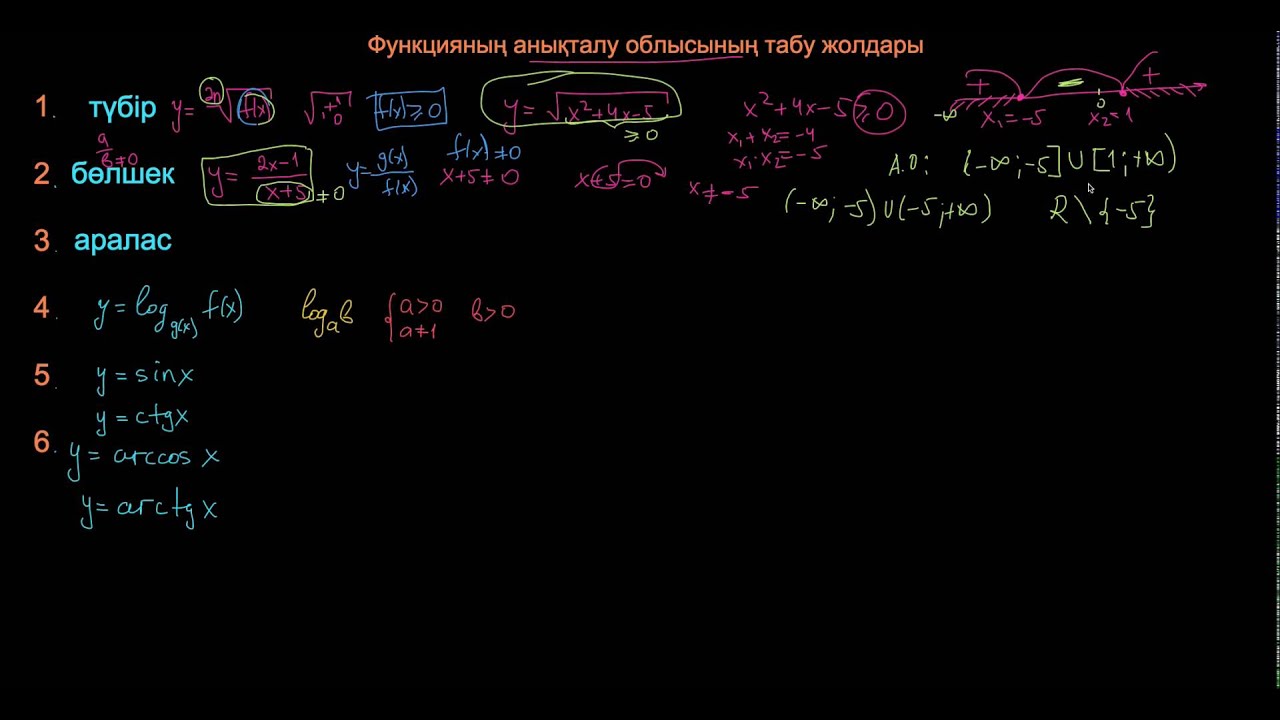 Функцияның анықталу облысының табу жолдары
1. түбір y = ²ⁿ√f(x) √+,0 f(x) ≥ 0 y = √x²+4x-5 ≥0 x²+4x-5 ≥ 0 + + -∞ x₁=-5 0 x₂=1
x₁+x₂=-4
x₁·x₂=-5
a/b≠0
2. бөлшек y = (2x-1)/(x+5) ≠0 y = g(x)/f(x) f(x)≠0 x+5≠0 x+5=0 x≠-5 А.О: (-∞;-5]∪[1;+∞)
(-∞;-5)∪(-5;+∞) R\{-5}
3. аралас
4. y = log_g(x) f(x) log_a b { a>0 a≠1 b>0
5. y = sinx
y = ctgx
6. y = arccos x
y = arctg x